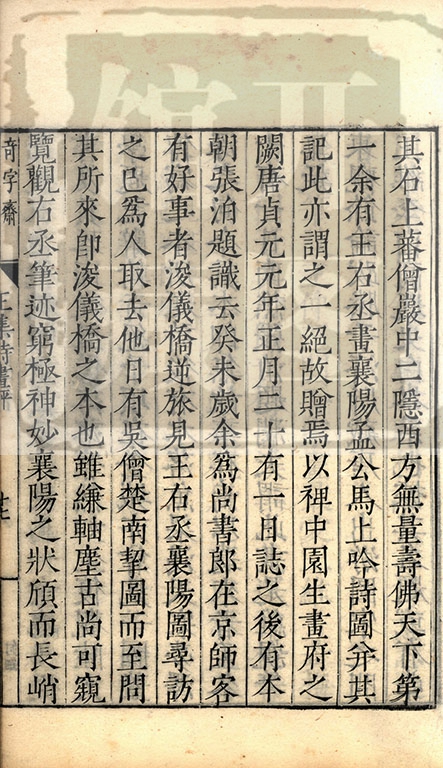 其石上蕃僧巖中二隱西方無量壽佛天下第
一余有王右丞畫襄陽孟公馬上吟詩圖并其
記此亦謂之一絕故贈焉以裨中園生畫府之
闕唐貞元元年正月二十有一日誌之後有本
朝張泊題識云癸未歲余爲尚書郎在京師客
有好事者浚儀橋逆旅見王右丞襄陽圖尋訪
之已爲人取去他日有吳僧楚南挈圖而至問
其所來卽浚儀橋之本也雖縑軸塵古尚可窺
覽觀右丞筆迹窮極神妙襄陽之狀頎而長峭
奇字齋
王集詩畫評